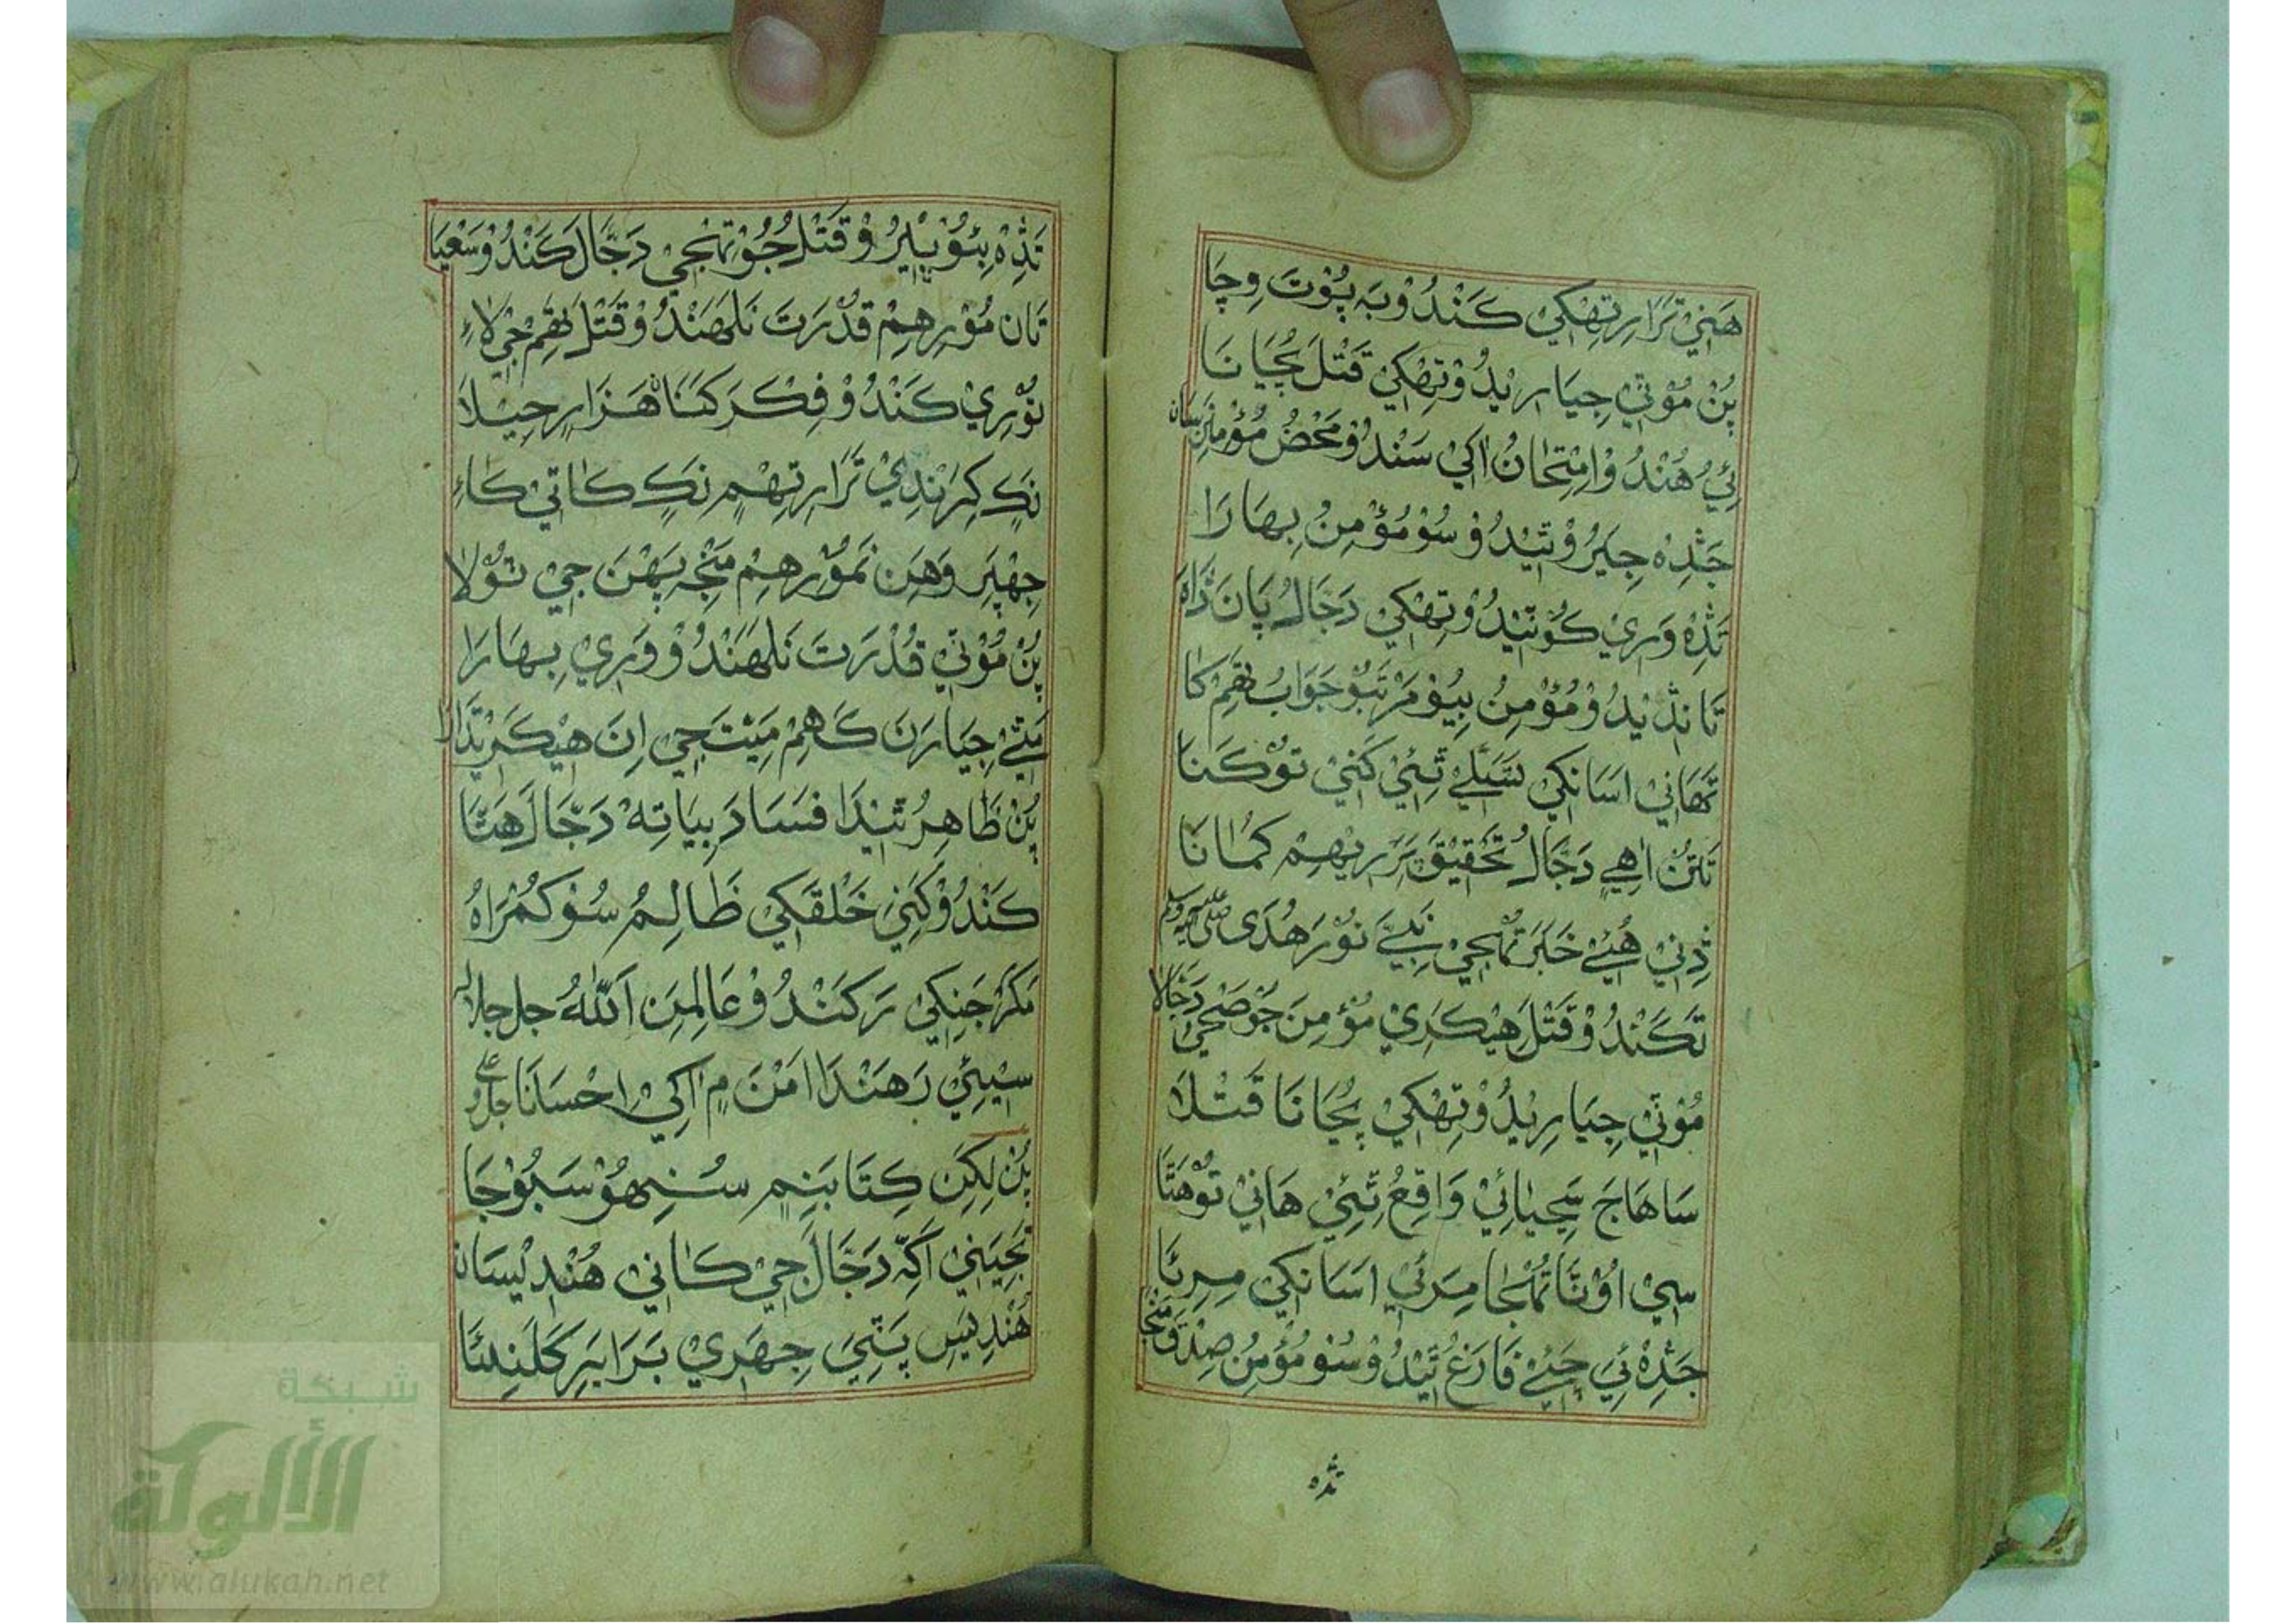 هَنِيْ تَرَارِ تِهْكِيْ كَنْدُوْ بَه پُوْتَ وِچَا
پُنْ مُوْتِيْ جِيَارِيْدُوْ تِهْكِيْ قَتْلَ بُچَيَانَا
ئِيُ هُنْدُوْ اِمْتِحَانُ اكِيْ سَنْدُوْ مَحْضُ مُؤْمِنَنِ سَان
جَڎِه جِيَرُوْ تِيْدُوْ سُوْ مُؤْمِنُ بِهَارَا
تَڎِه وَرِيْ كُوْتِيْدُوْ تِهْكِيْ دَجَّالُ پَانَ ڎَاهَ
تَا نَڎِيْدُوْ مُؤْمِنُ بِيُوْ مَرْتَبُوْ جَوَابُ تِهَمْ كَا
تَهَانِيْ اسَانكِيْ تَسَلِّيْ تِئِيْ كَنِيْ تُوْ كَنَا
تَتُنْ اهِيْ دَجَّالُ تَحْقِيْقَ تَرَرِ تِهِمْ كَمَانَا
ڎِنِيْ هُيِئْ خَبَرَ تُهْجِيْ نَبِيَّ نُوْرَ هُدَى صلى الله عليه وسلم
تَكَنْدُوْ قَتْلَ هِيْكَرِيْ مُؤْمِنَ جُوْ صَحِيْ دَجَّالَا
مُوْتِيْ جِيَارِيْدُوْ تِهْكِيْ بُچَيَانَا قَتْلَا
سَا هَاجَ سَچِيَائِيْ وَاقِعُ تِئِيْ هَانِيْ تُوْهَتَا
سِيْ اوْنَّا تُهْجَا مِرَئِيْ اسَانكِيْ مِرِئَا
جَڎِهْ ئِيَ چَئِيْ فَارَغُ تِيْدُوْ سُوْ مُؤْمِنُ صِدْقَ مَنْجَا
تڎه
تَڎِهْ بِئُوْ ڀِيْرُوْ قَتْلَ جُوْ تِهْجِيْ دَجَّالَ كَنْدُوْ سَعْيَا
تَان مُوْرِهِمْ قُدْرَتَ نَلَهَنْدُوْ قَتْلَ تِهَمْ جِيْ لَاءِ
تُوْرِيْ كَنْدُوْ فِكْرَ كَنَا هَزَارِ حِيْلَا
نَكِ كِرَنْدِيْ تَرَارِ تِهِمْ نَكِ كَاتِيْ كَاءِ
جِهْپَرِ وَهَنِ نَمُوْرِهِمْ مَنْجِهْ پَهْنَ جِيْ تُوْلَا
پُنْ مُوْتِيْ قُدْرَتَ نَلَهَنْدُوْ وَرِيْ بِهَارَا
مَتِيْ جِيَارَنَ كَهِمْ مَيِّتَ جِيْ اِنَ هِيْكَرِيْتَدَارَا
پُنْ ظَاهِرُ تِيْدَا فسَادَ بِيَا تِهْ دَجَّالَ هَتَا
كَنْدُوْ كَنِيْ خَلْقَكِيْ ظَالِمُ سُوْ كُمْرَاهُ
مَكَرْ جَنِكِيْ رَكَنْدُوْ عَالَمِنِ اَللّٰهُ جل جلاله
سِيْيِئِيْ رَهَنْدَا اَمْنَ مِ اكِيْ اِحْسَانَا جل وعلى
پُنْ لِكِنِ كِتَابَنِمِ سُنِهُوْ سَبُوْ جَا
تَجِيَنِيْ اَكِهْ دَجَّالَ جِيْ كَانِيْ هُنْدِيْسَان
هُنْدِيَسِ پَتِيَ جِهَرِيْ بَرَابَرِ كَلَنِئَا
شبكة
الألوكة
www.alukah.net